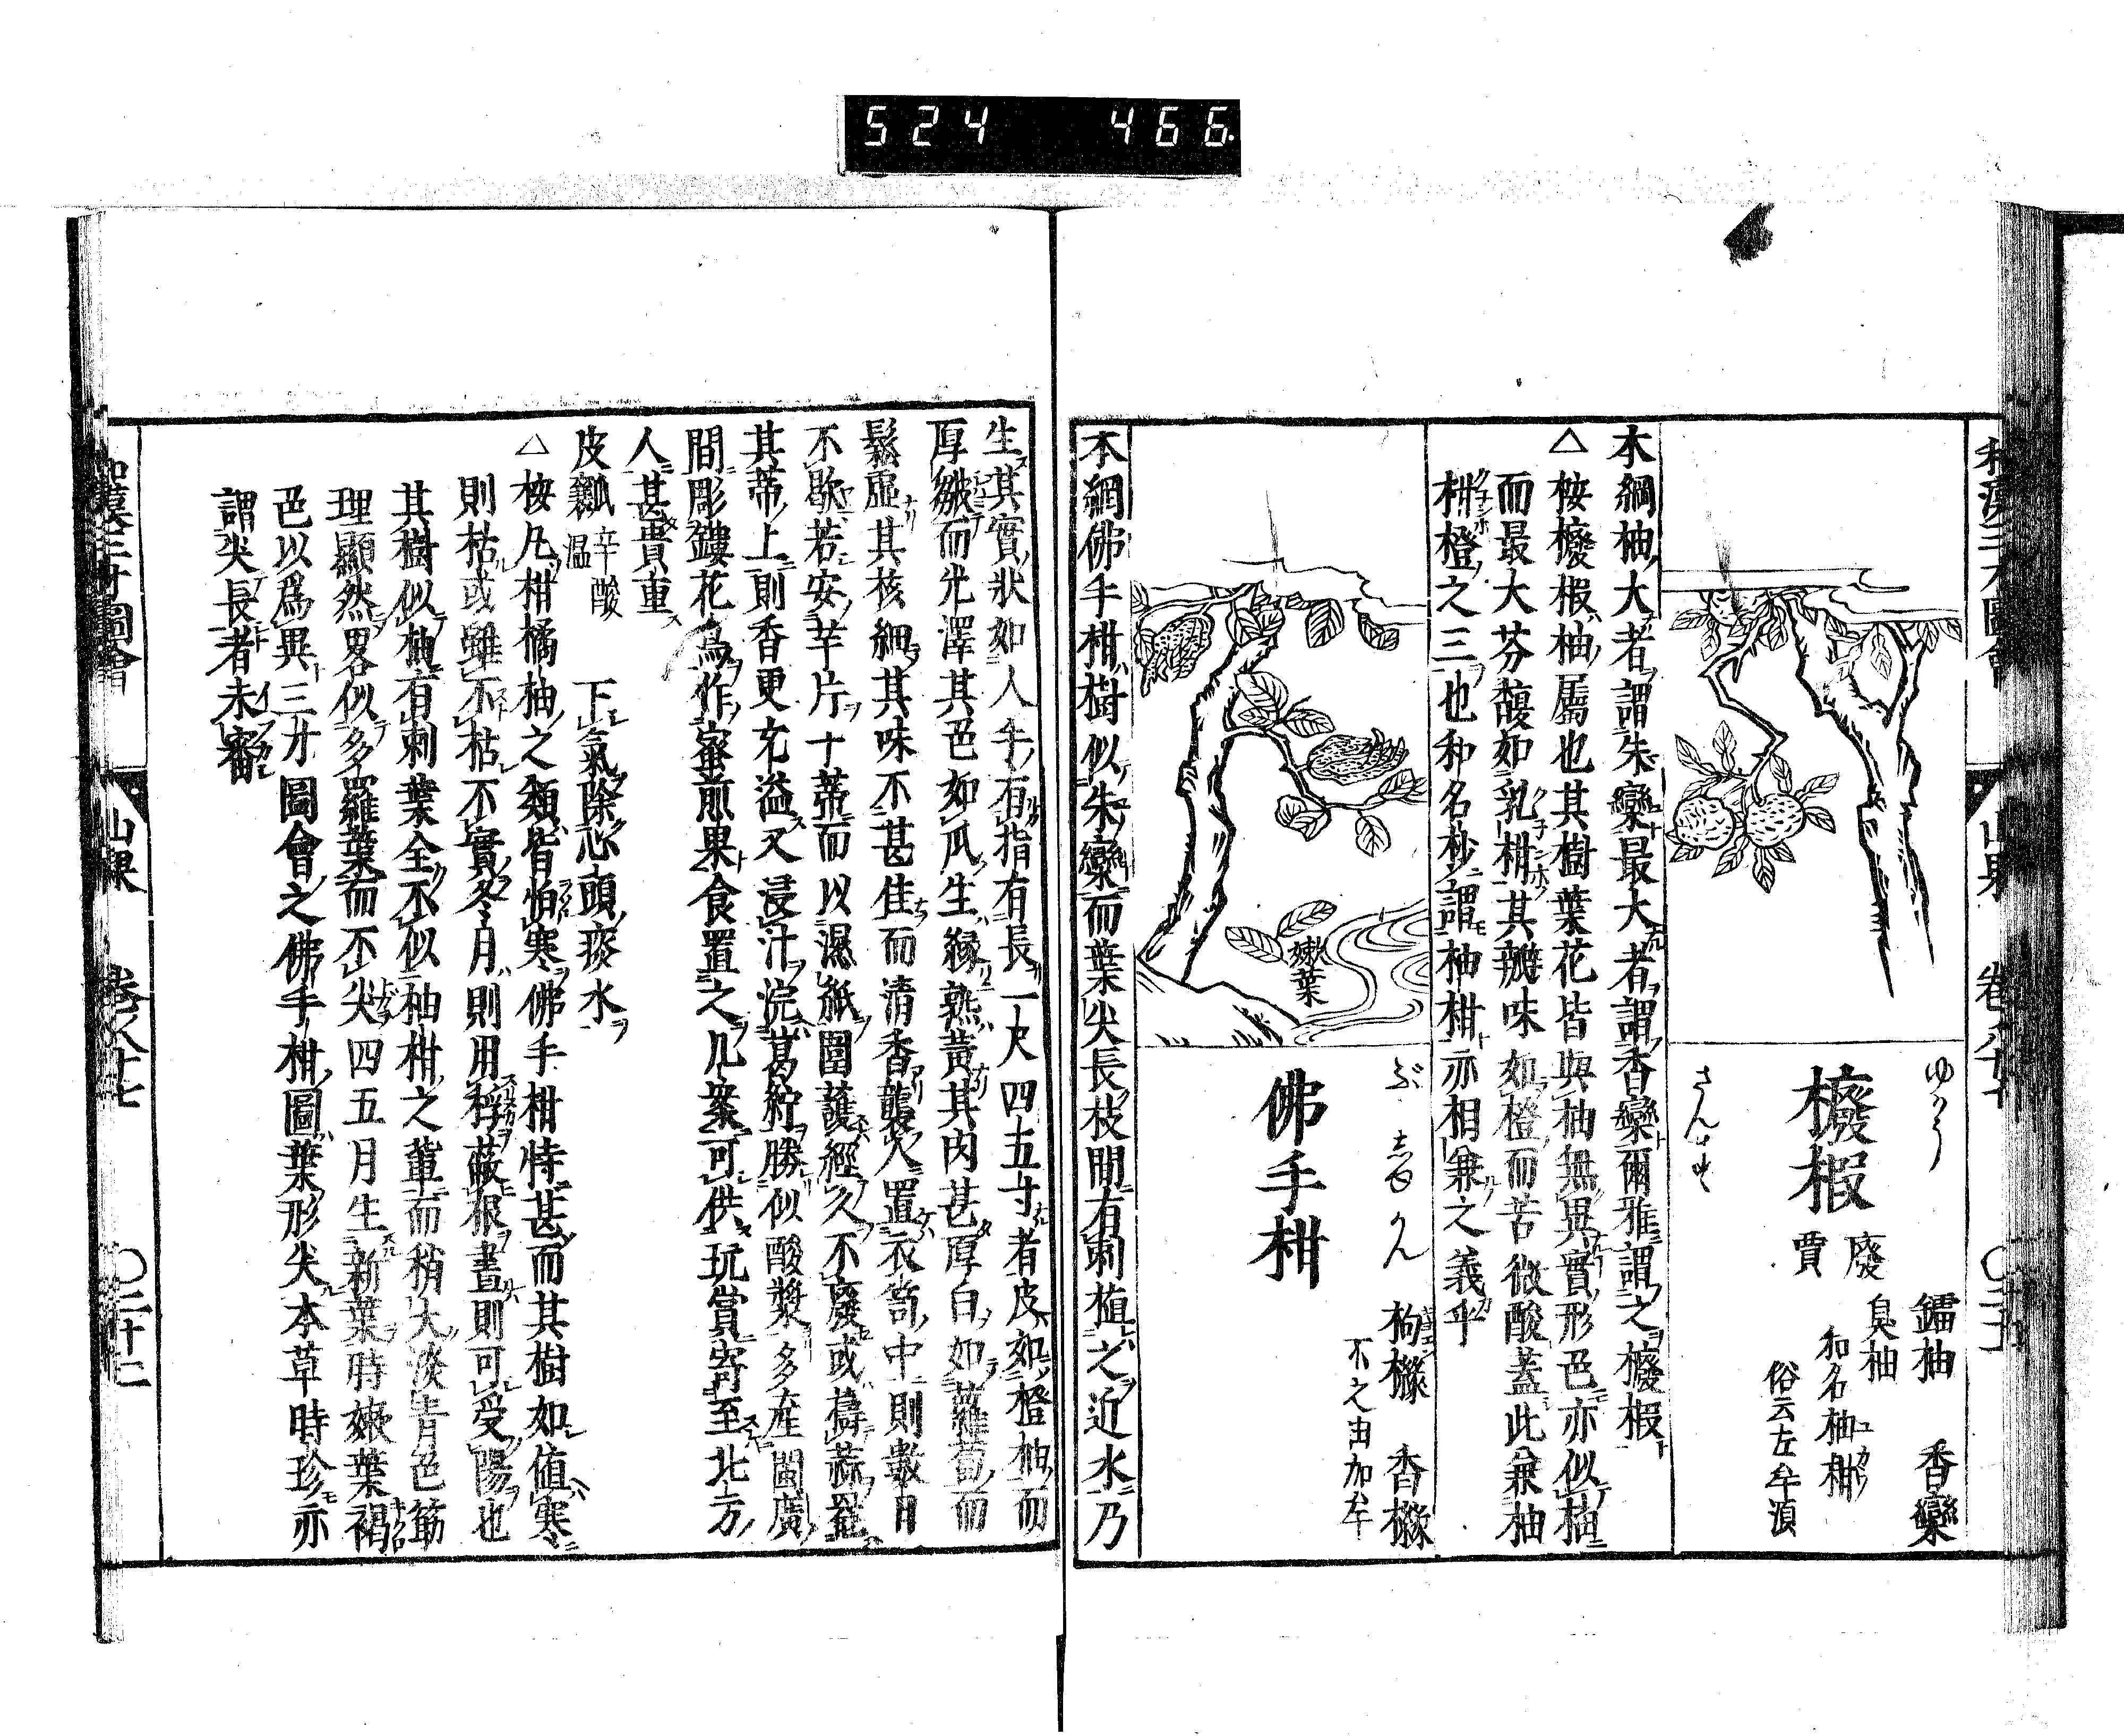 524 466.
和漢三才圖會 山果 卷八十七
ゆかう
さんす
櫠椵
廢
賈
鐳柚 香欒
臭柚
和名柚柑
俗云左牟須
本綱柚大者謂朱欒最大者謂香欒爾雅謂之櫠椵
△按櫠椵柚屬也其樹葉花皆與柚無異實形色亦似柚
而最大芬馥如乳柑其瓣味如橙而苦微酸蓋此兼柚
柑橙之三也和名抄謂柚柑亦相兼之義乎
嫩葉
ぶしゆかん
佛手柑
枸櫞 香櫞
不之由加牟
本綱佛手柑樹似朱欒而葉尖長枝間有刺植之近水乃
生其實狀如人手有指有長一尺四五寸者皮如橙柚而
厚皺而光澤其色如瓜生緑熟黃其肉甚厚白如蘿蔔而
鬆虛其核細其味不甚佳而清香襲人置衣笥中則數月
不歇若安芋片于蒂而以濕紙圍護經久不癟或擣蒜罨
其蒂上則香更充溢又浸汁浣葛紵勝似酸漿多產閩廣
間彫鏤花鳥作蜜煎果食置之几案可供玩賞寄至北方
人甚貴重
皮瓤 辛酸
溫
下氣除心頭痰水
△按凡柑橘柚之類皆怕寒佛手柑特甚而其樹如値寒
則枯或雖不枯不實冬月則用稃蔽根晝則可受陽也
其樹似柚有刺葉全不似柚柑之輩而稍大淡青色筋
理顯然畧似多羅葉而不尖四五月生新葉時嫩葉褐
色以爲異三才圖會之佛手柑圖葉形尖本草時珍亦
謂尖長者未審
和漢三才圖會 山果 卷八十七 〇二十二